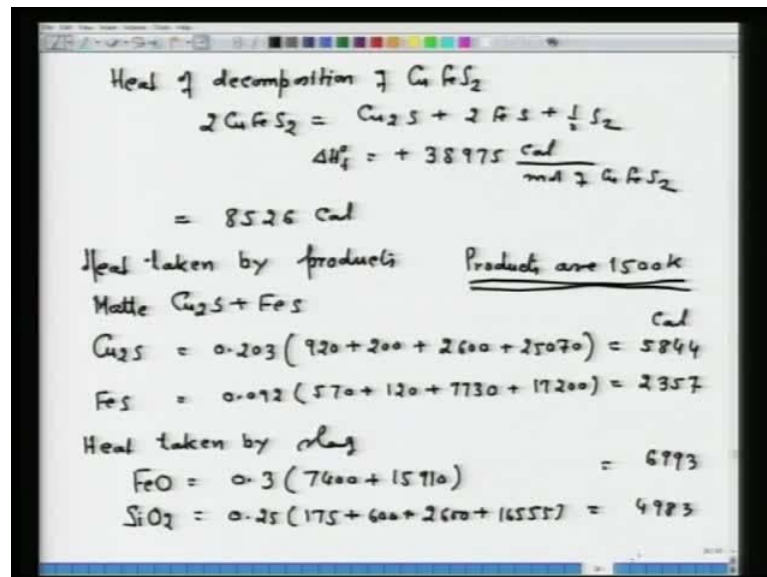 Heat of decomposition of CuFeS2
2 CuFeS2 = Cu2S + 2 FeS + 1/2 S2
ΔH°f = + 38975 cal / mol of CuFeS2
= 8526 Cal
Heat taken by products Products are 1500K
Matte Cu2S + FeS
Cal
Cu2S = 0.203 (920 + 200 + 2600 + 25070) = 5844
FeS = 0.092 (570 + 120 + 7730 + 17200) = 2357
Heat taken by slag
FeO = 0.3 (7400 + 15910) = 6993
SiO2 = 0.25 (175 + 600 + 2600 + 16555) = 4983